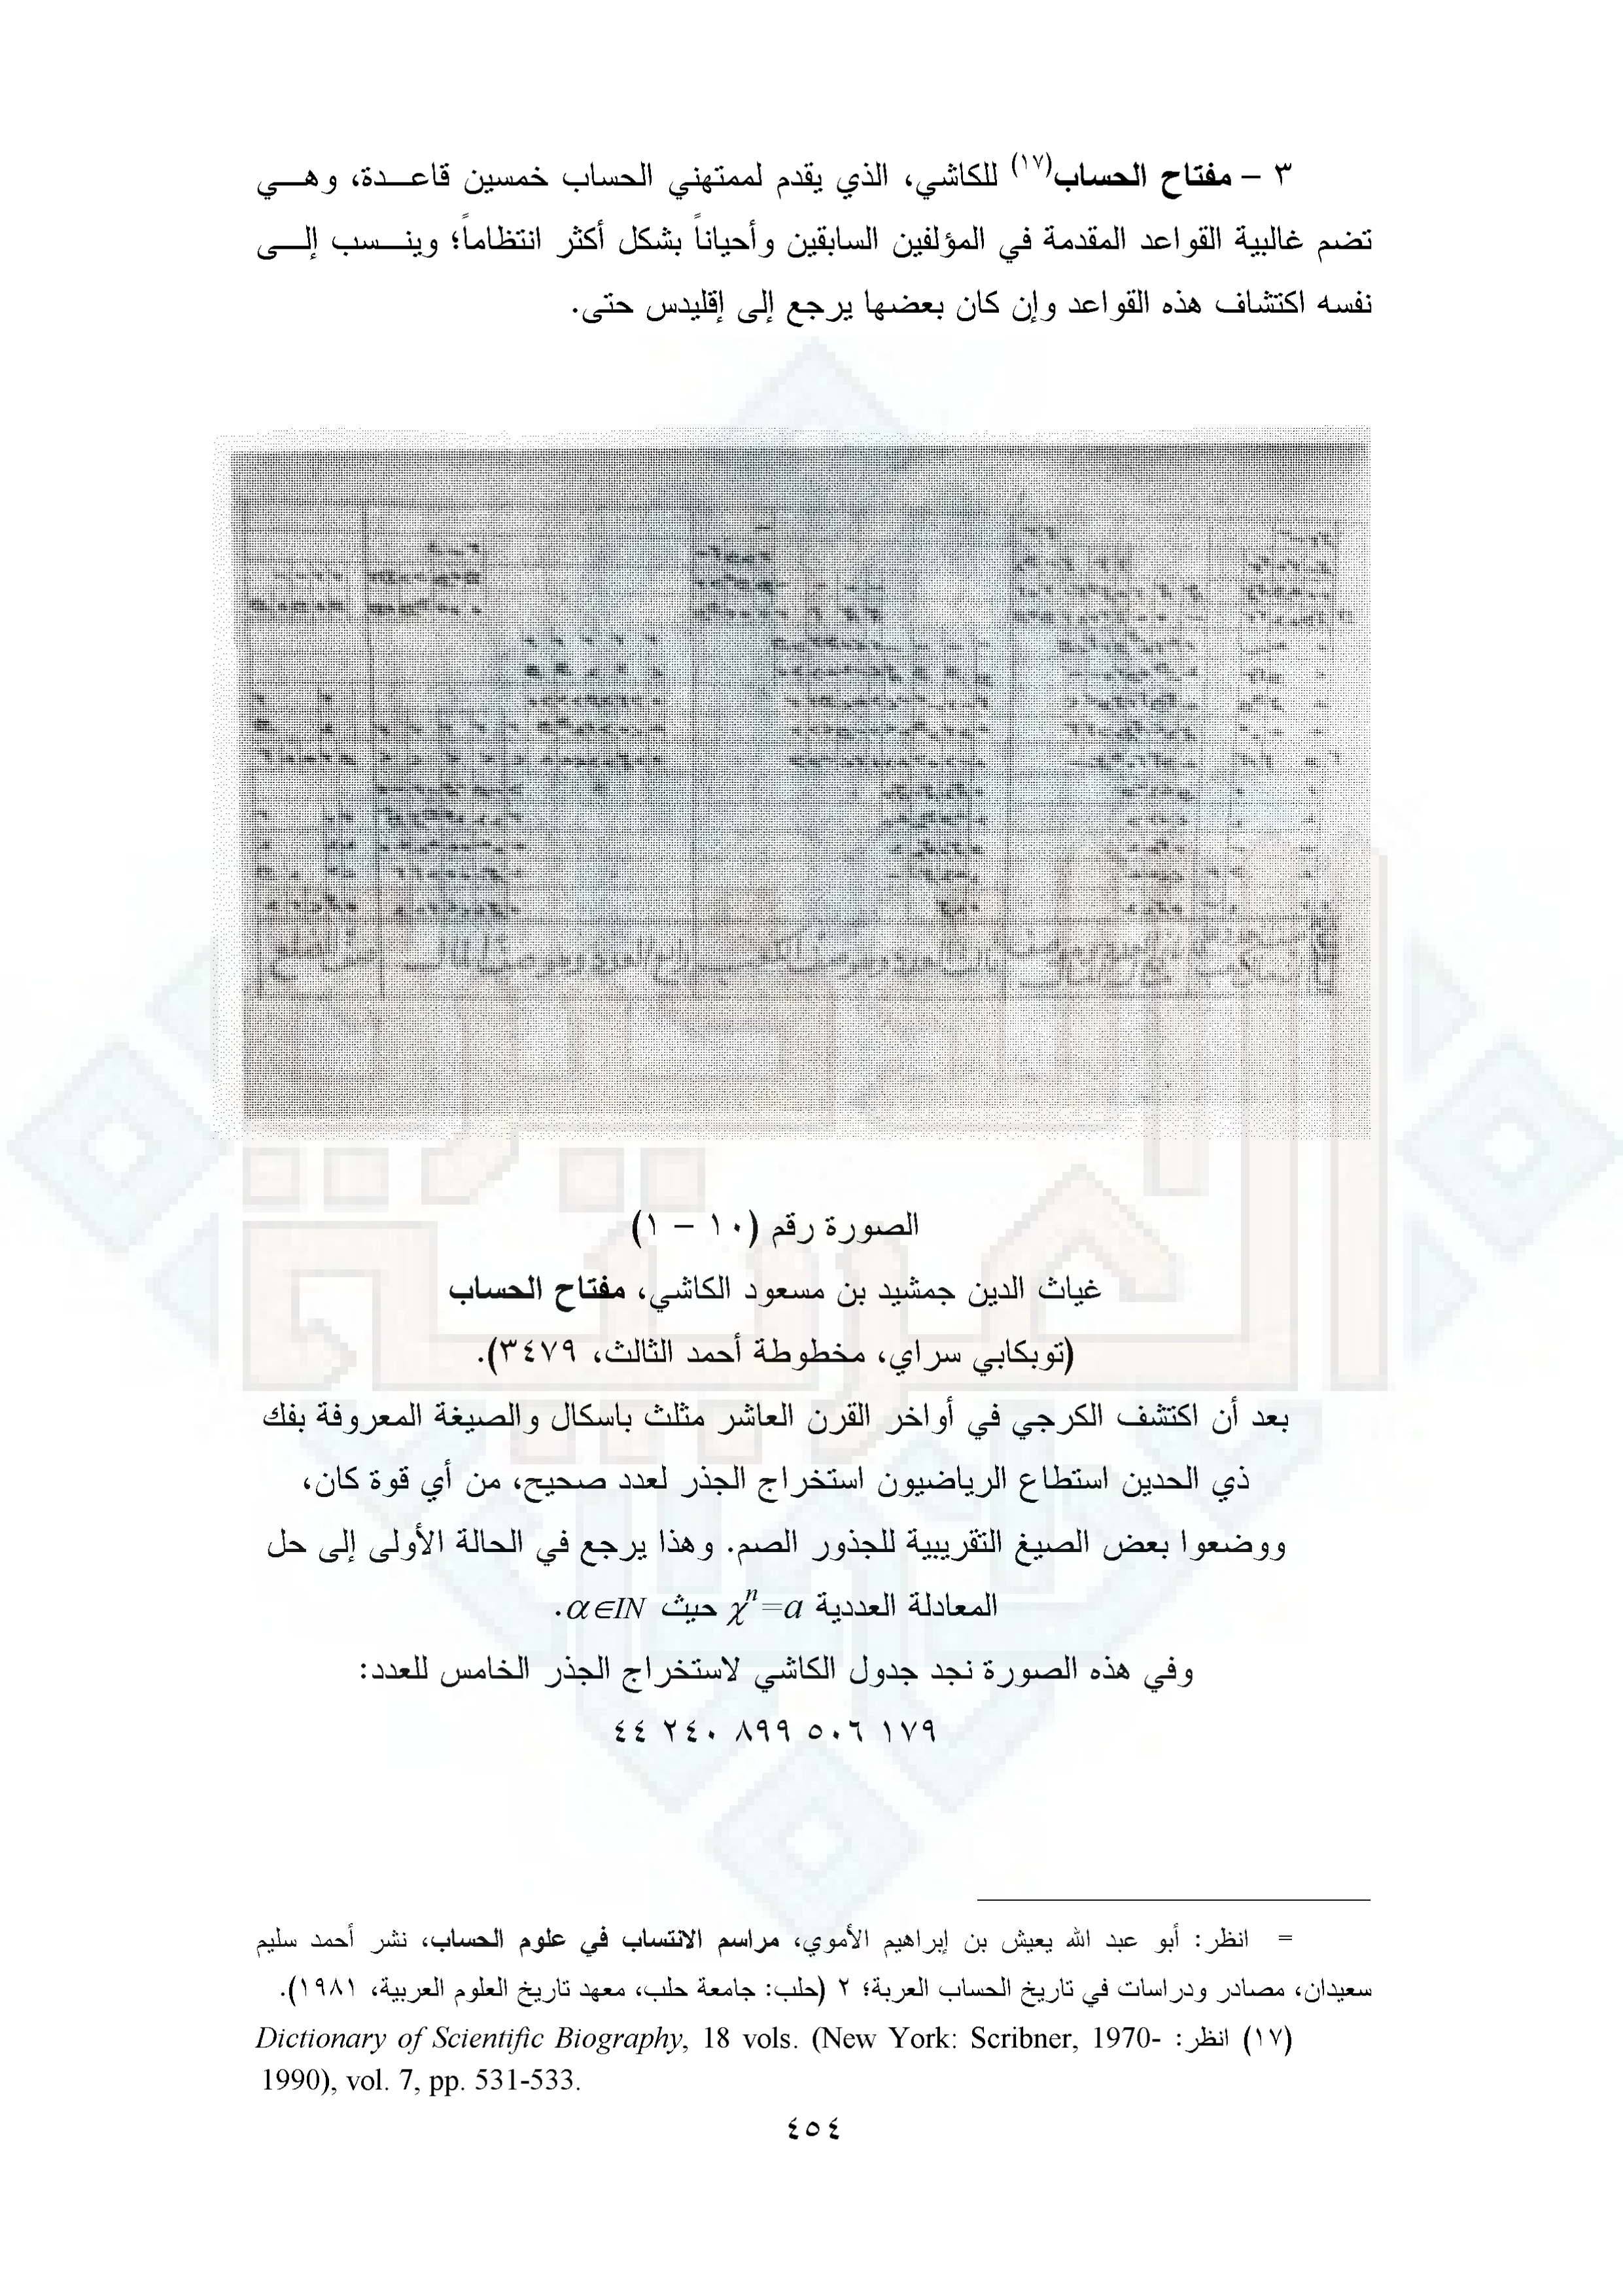 ٣ – مفتاح الحساب(١٧) للكاشي، الذي يقدم لممتهني الحساب خمسين قاعدة، وهي
تضم غالبية القواعد المقدمة في المؤلفين السابقين وأحياناً بشكل أكثر انتظاماً؛ وينسب إلى
نفسه اكتشاف هذه القواعد وإن كان بعضها يرجع إلى إقليدس حتى.
الصورة رقم (١٠ – ١)
غياث الدين جمشيد بن مسعود الكاشي، مفتاح الحساب
(توبكابي سراي، مخطوطة أحمد الثالث، ٣٤٧٩).
بعد أن اكتشف الكرجي في أواخر القرن العاشر مثلث باسكال والصيغة المعروفة بفك
ذي الحدين استطاع الرياضيون استخراج الجذر لعدد صحيح، من أي قوة كان،
ووضعوا بعض الصيغ التقريبية للجذور الصم. وهذا يرجع في الحالة الأولى إلى حل
المعادلة العددية χⁿ=a حيث α∈IN.
وفي هذه الصورة نجد جدول الكاشي لاستخراج الجذر الخامس للعدد:
٤٤ ٢٤٠ ٨٩٩ ٥٠٦ ١٧٩
= انظر: أبو عبد الله يعيش بن إبراهيم الأموي، مراسم الانتساب في علوم الحساب، نشر أحمد سليم
سعيدان، مصادر ودراسات في تاريخ الحساب العربة؛ ٢ (حلب: جامعة حلب، معهد تاريخ العلوم العربية، ١٩٨١).
(١٧) انظر: Dictionary of Scientific Biography, 18 vols. (New York: Scribner, 1970-
1990), vol. 7, pp. 531-533.
٤٥٤